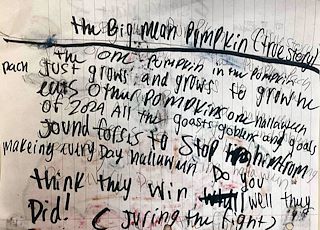 the Big mean Pumpkin (true story)
the one Pumpkin in the Pumpkin
pach just grows and grows to grow he
eats other Pompkins one halloween
of 2024 All the goasts goblins and gouls
jound forses to stop him from
makeing every Day hallowun Do you
think they win well they
Did! ( Juring the fight)